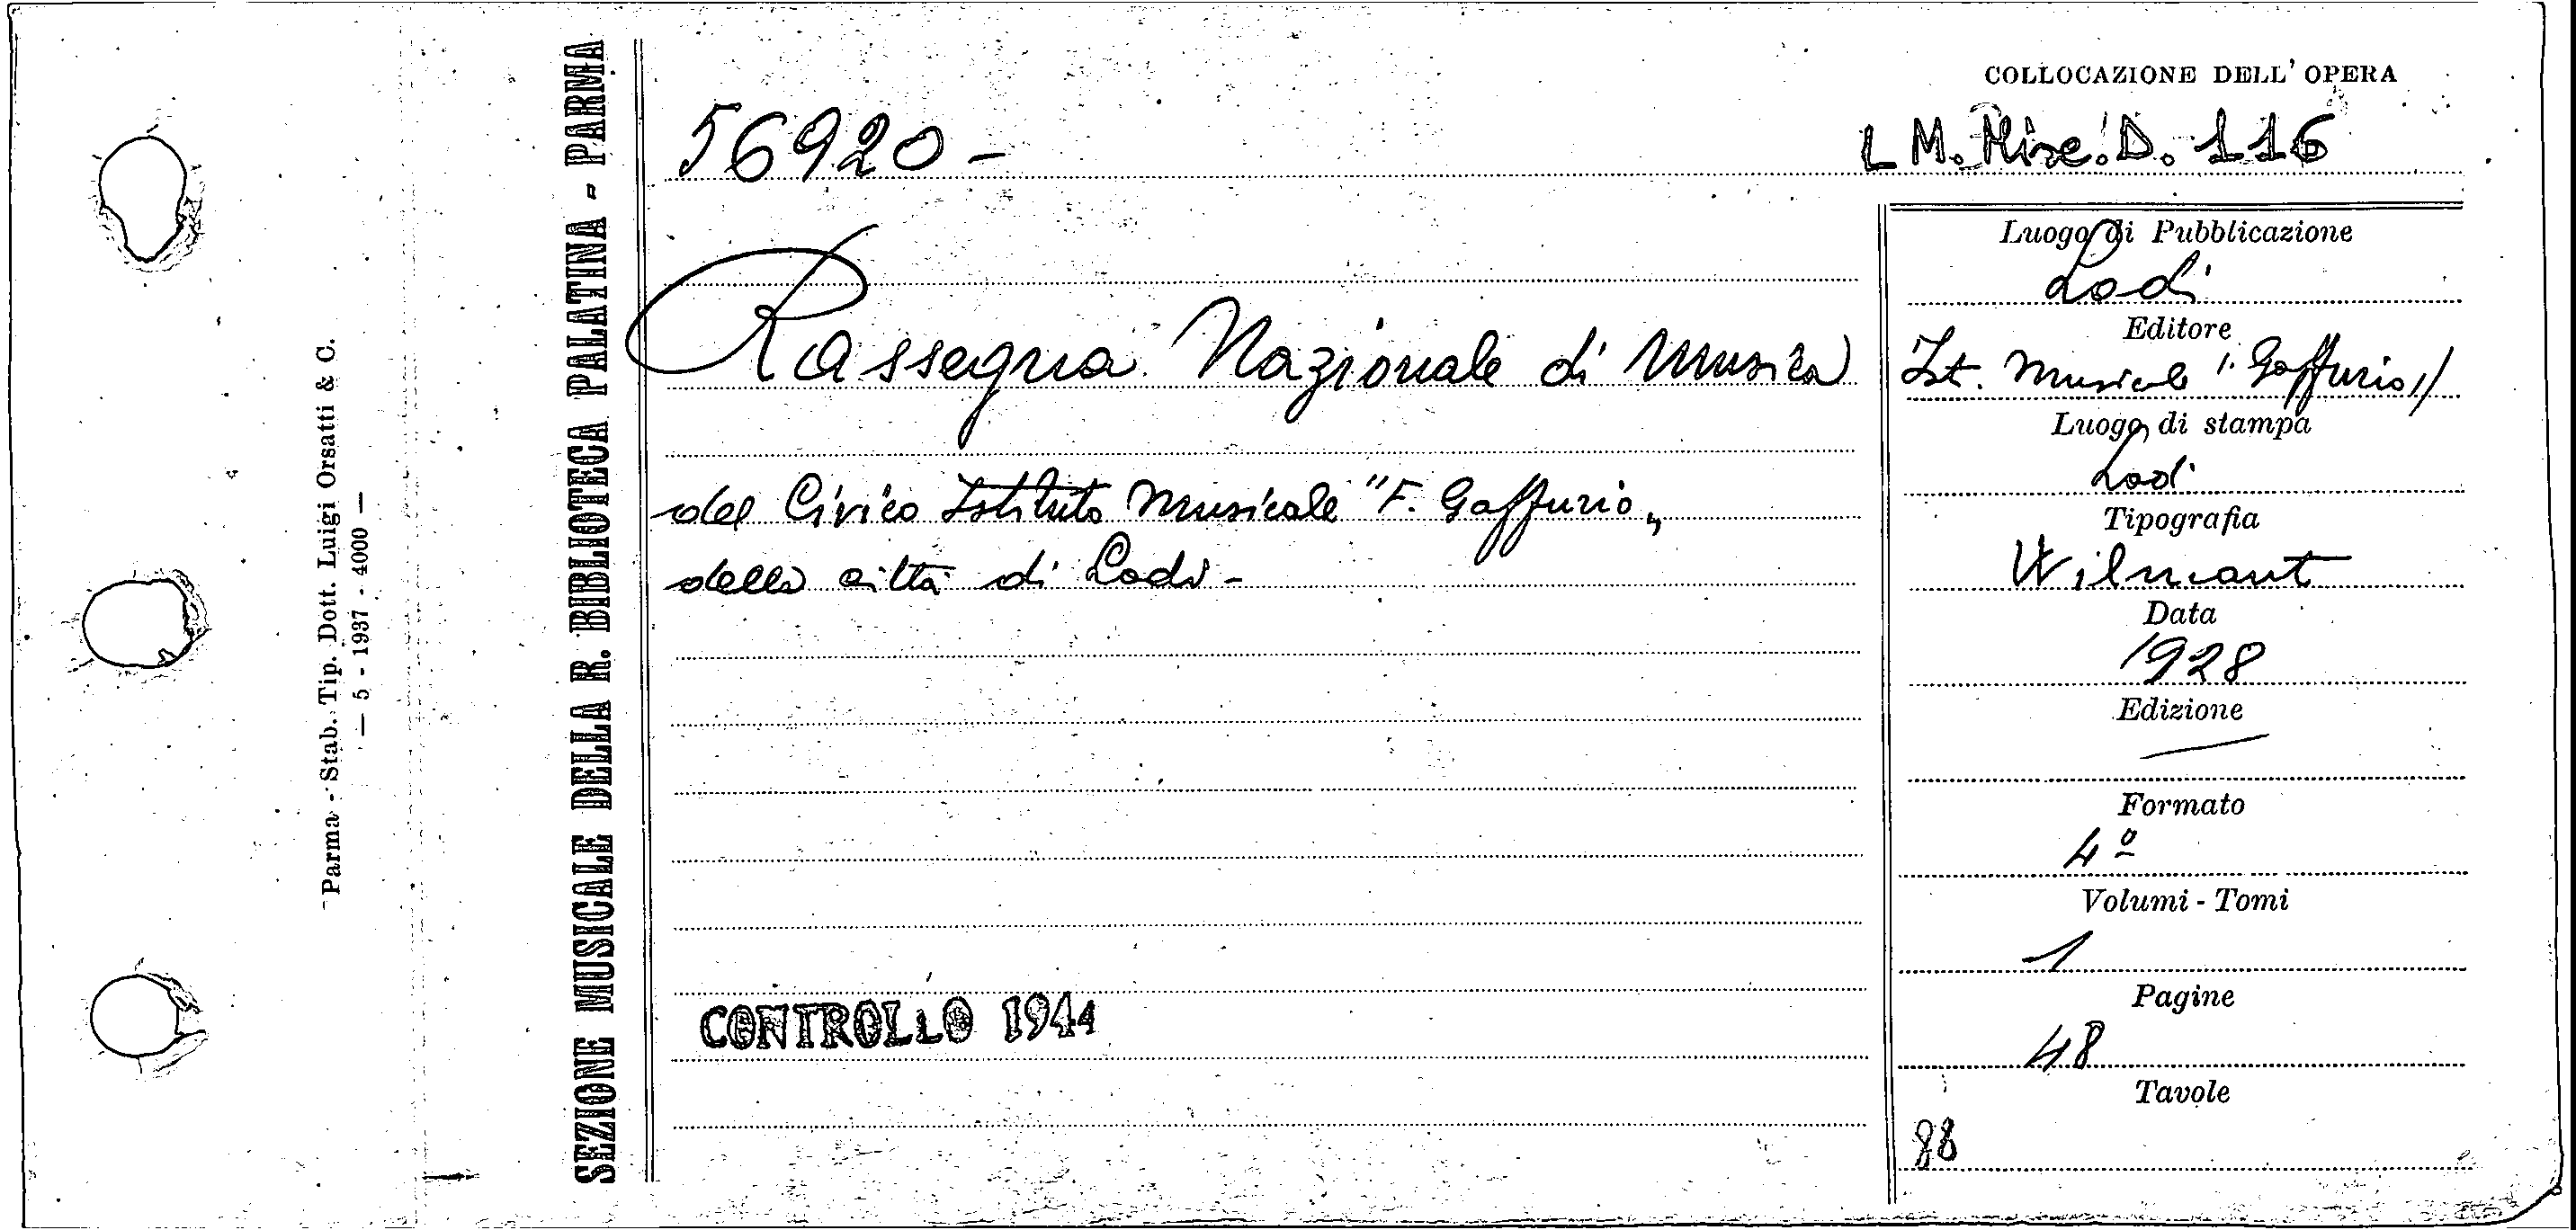 Parma - Stab. Tip. Dott. Luigi Orsatti & C.
— 5 - 1937 - 4000 —
SEZIONE MUSICALE DELLA R. BIBLIOTECA PALATINA - PARMA
COLLOCAZIONE DELL'OPERA
56920 -
L M. Misc. D. 116
Rassegna Nazionale di Musica
del Civico Istituto Musicale "F. Gaffurio„
della città di Lodi -
CONTROLLO 1944
Luogo di Pubblicazione
Lodi
Editore
Ist. Musicale "Gaffurio"
Luogo di stampa
Lodi
Tipografia
Wilmant
Data
1928
Edizione
Formato
4º
Volumi - Tomi
1
Pagine
48
Tavole
88